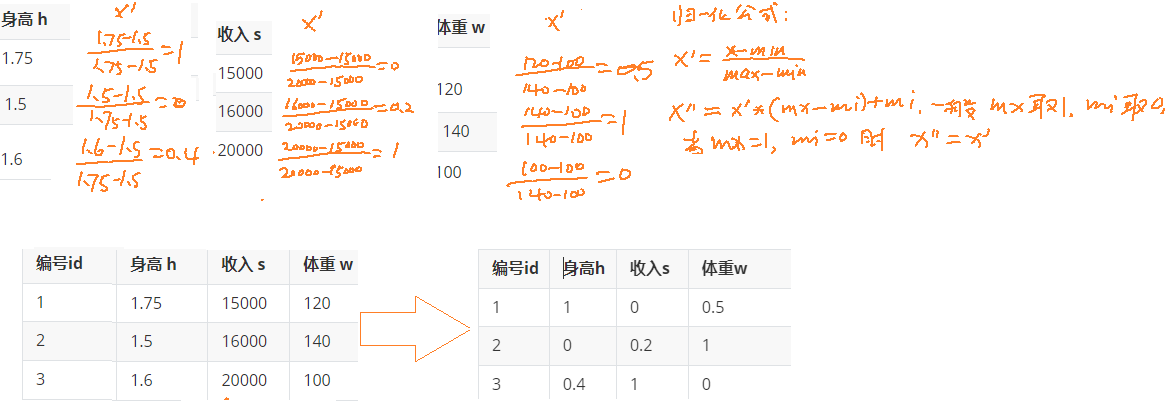 身高 h
x'
1.75
1.75-1.5
1.75-1.5
=1
1.5
1.5-1.5
1.75-1.5
=0
1.6
1.6-1.5
1.75-1.5
=0.4
收入 s
x'
15000
15000-15000
20000-15000
=0
16000
16000-15000
20000-15000
=0.2
20000
20000-15000
20000-15000
=1
体重 w
x'
120
120-100
140-100
=0.5
140
140-100
140-100
=1
100
100-100
140-100
=0
归一化公式:
x'=
x-min
max-min
x''=x'*(mx-mi)+mi, 一般 mx取1, mi取0,
若mx=1, mi=0 时 x''=x'
编号id 身高 h 收入 s 体重 w
1 1.75 15000 120
2 1.5 16000 140
3 1.6 20000 100
编号id 身高h 收入s 体重w
1 1 0 0.5
2 0 0.2 1
3 0.4 1 0